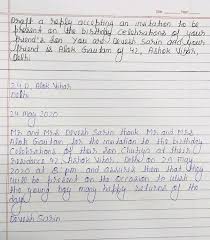 Draft a reply accepting an invitation to be
present on the birthday celebrations of your
friend's son. You are Devesh Sarin and your
friend is Alok Gautam of 42, Ashok Vihar,
Delhi
24 D, Alok Vihar
Delhi
24 May 2020
Mr. and Mrs. Devesh Sarin thank Mr. and Mrs.
Alok Gautam for the invitation to the birthday
Celebrations of their Son at their
residence 42, Ashok Vihar, Delhi on 29 May,
2020 at 8 pm and assures them that they
will be present on the occasion to wish
the young boy many happy returns of the
day.
Devesh Sarin